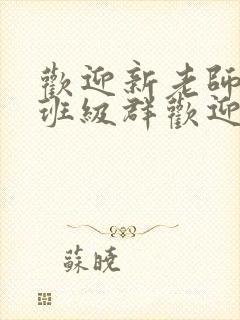 歡迎新老師
班級群歡迎
蘇曉